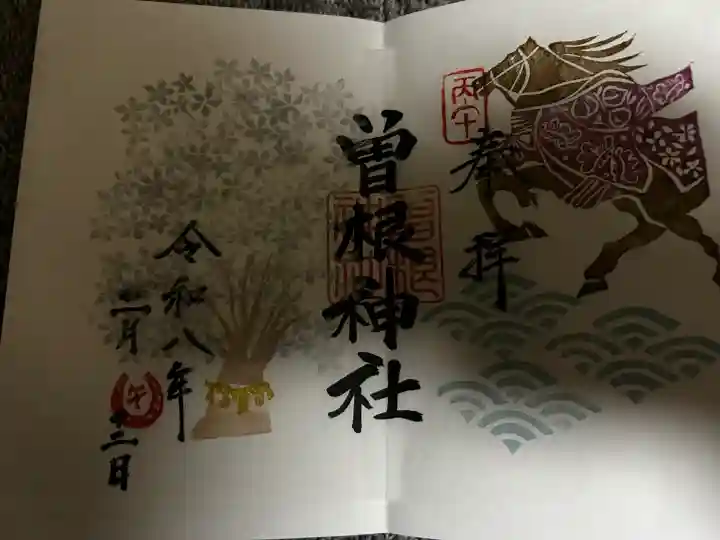 丙午
奉拝
曽根神社
令和八年
二月
午
十二日